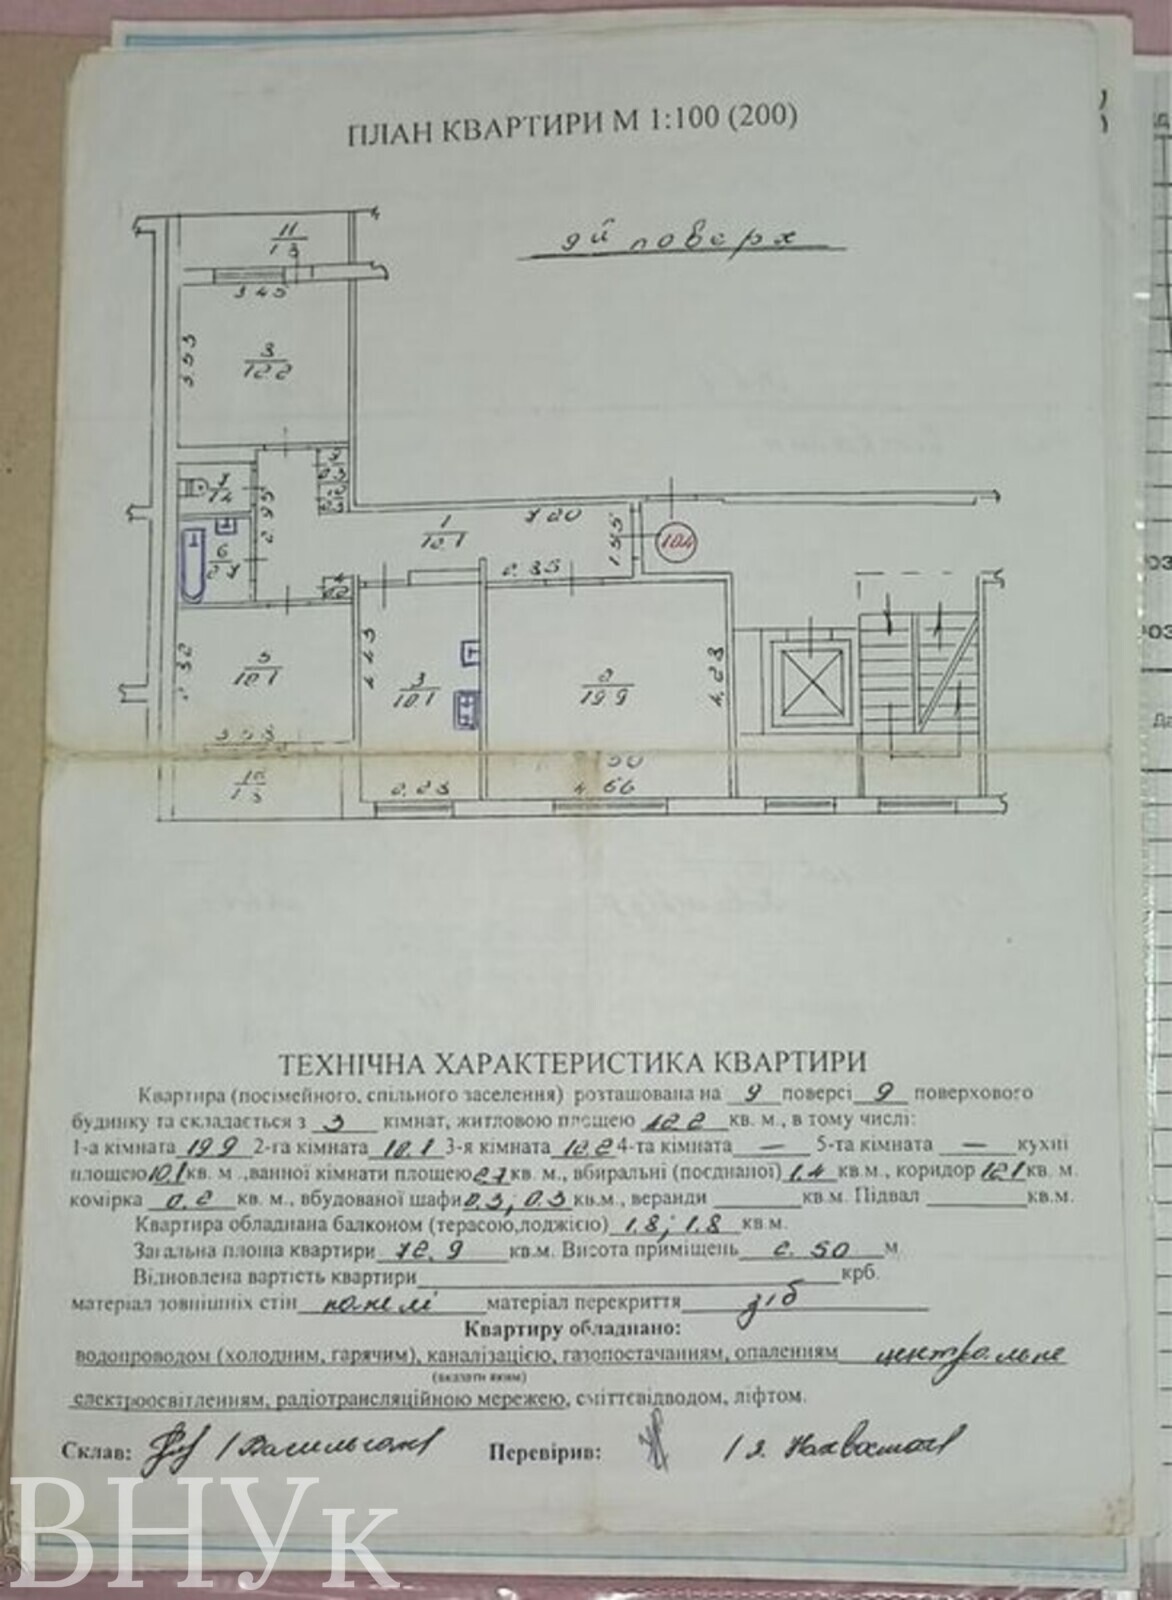 ПЛАН КВАРТИРИ М 1:100 (200)
9й поверх
11
1.8
3.45
3.53
8
12.2
7
1.4
2.95
6
2.7
1
12.1
7.20
1.55
104
2.35
4.43
5
10.1
3
10.1
2
19.9
4.23
10
1.8
2.23
4.66
ТЕХНІЧНА ХАРАКТЕРИСТИКА КВАРТИРИ
Квартира (посімейного, спільного заселення) розташована на 9 поверсі 9 поверхового
будинку та складається з 3 кімнат, житловою площею 42.2 кв. м., в тому числі:
1-а кімната 19.9 2-га кімната 10.1 3-я кімната 12.2 4-та кімната — 5-та кімната — кухні
площею 10.1 кв. м .,ванної кімнати площею 2.7 кв. м., вбиральні (поєднаної) 1.4 кв.м., коридор 12.1 кв. м.
комірка 0.2 кв. м., вбудованої шафи 0.3; 0.3 кв.м., веранди кв.м. Підвал кв.м.
Квартира обладнана балконом (терасою,лоджією) 1.8; 1.8 кв.м.
Загальна площа квартири 72.9 кв.м. Висота приміщень 2.50 м
Відновлена вартість квартири крб.
матеріал зовнішніх стін панелі матеріал перекриття з/б
Квартиру обладнано:
водопроводом (холодним, гарячим), каналізацією, газопостачанням, опаленням центральне
(вказати яким)
електроосвітленням, радіотрансляційною мережею, сміттєвідводом, ліфтом.
Склав: Перевірив:
ВНУк